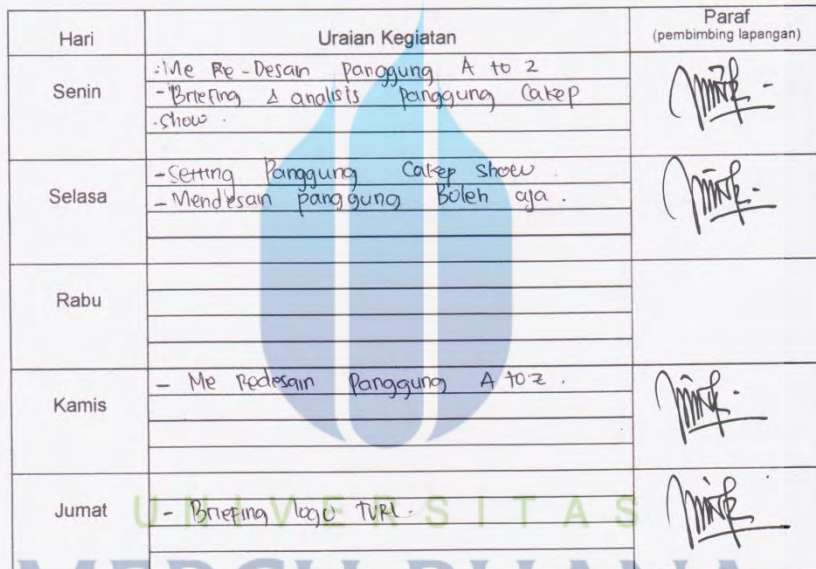 Hari Uraian Kegiatan Paraf
(pembimbing lapangan)
Senin
- Me Re-Desain panggung A to Z
- Briefing & analisis panggung Cakep
show.
Selasa
- Setting Panggung Cakep show.
- Mendesain panggung Boleh aja.
Rabu
Kamis
- Me Redesain Panggung A to z.
Jumat
- Briefing logo TVRI.
UNIVERSITAS
MERCU BUANA